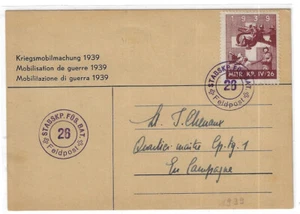 1939
MITR. KP. IV/26
Kriegsmobilmachung 1939
Mobilisation de guerre 1939
Mobilitazione di guerra 1939
STABSKP. FÜS. BAT.
26
Feldpost
STABSKP. FÜS. BAT.
26
Feldpost
Lt. J. Chenaux
Quartier-maître
En Campagne
1939